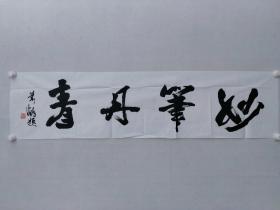 妙筆丹青